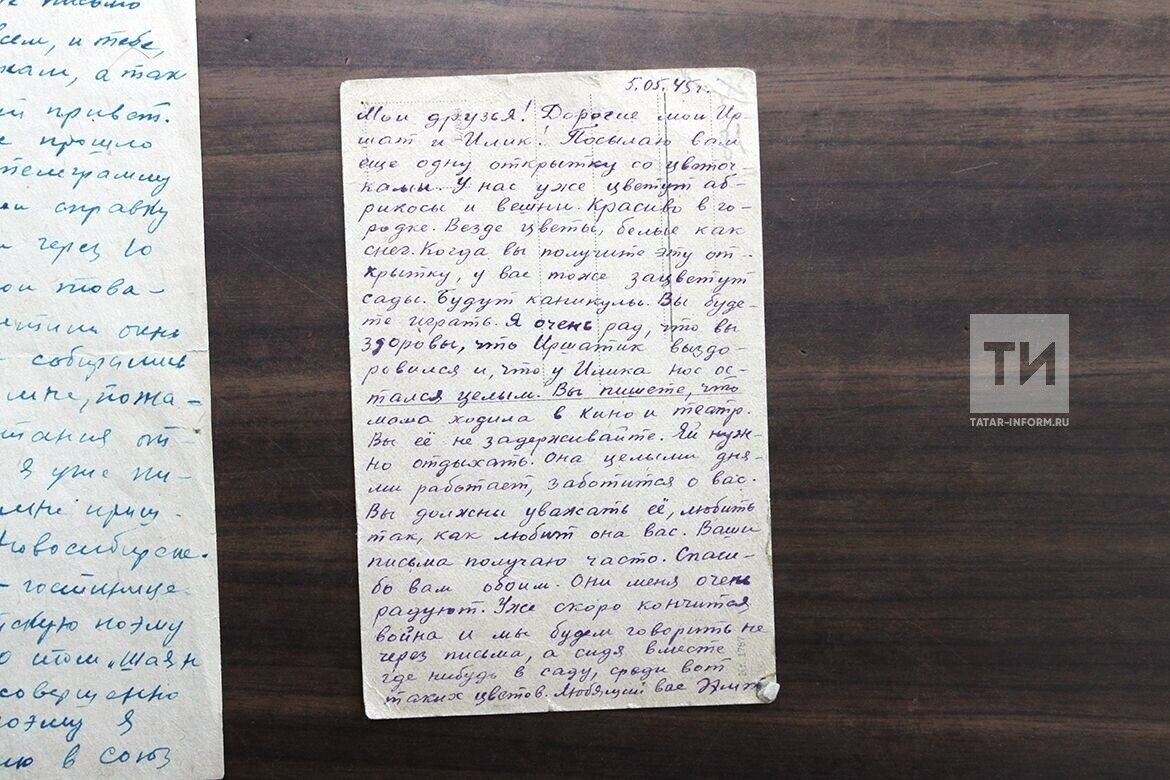 письмо
всем, и тебе,
кам, а так
привет.
прошло
телеграмму
справку
через 10
това-
окно
собирались
мне, пожа-
от-
Я уже пи-
мне приш-
Новосибирске.
гостинице.
поэму
этом "Шаян
совершенно
поэму я
в союз
5.05.45г.
Мои друзья! Дорогие мои Ир-
шат и Илик! Посылаю вам
еще одну открытку со цветоч-
ками. У нас уже цветут аб-
рикосы и вешни. Красиво в го-
родке. Везде цветы, белые как
снег. Когда вы получите эту от-
крытку, у вас тоже зацветут
сады. Будут каникулы. Вы буде-
те играть. Я очень рад, что вы
здоровы, что Иршатик выздо-
ровился и, что у Илика нос ос-
тался целым. Вы пишете, что
мама ходила в кино и театр.
Вы её не задерживайте. Ей нуж-
но отдыхать. Она целыми дня-
ми работает, заботится о вас.
Вы должны уважать её, любить
так, как любит она вас. Ваши
письма получаю часто. Спаси-
бо вам обоим. Они меня очень
радуют. Уже скоро кончится
война и мы будем говорить не
через письма, а сидя вместе
где нибудь в саду, среди вот
таких цветов. Любящий вас
ТИ
TATAR-INFORM.RU